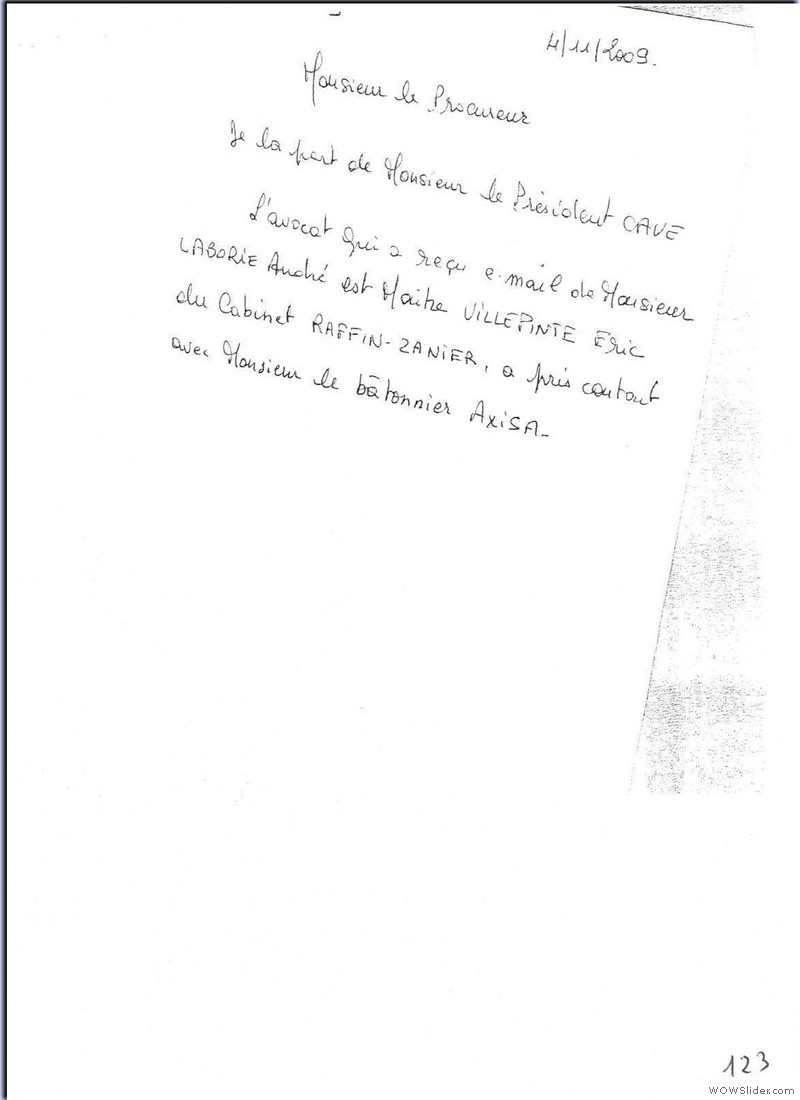 4/11/2009.
Monsieur le Procureur
De la part de Monsieur le Président CAVE
L'avocat qui a reçu e.mail de Monsieur
LABORIE André est Maitre VILLEPINTE Eric
du Cabinet RAFFIN-ZANIER, a pris contact
avec Monsieur le bâtonnier AXISA_
123
WOWSlider.com